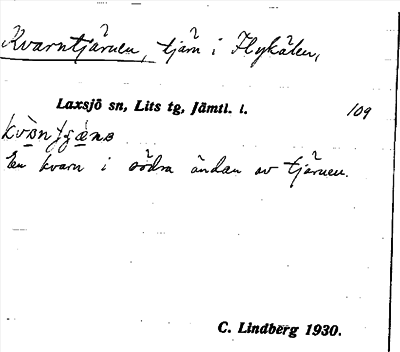 Kvarntjärnen, tjärn i Flykälen,
Laxsjö sn, Lits tg, Jämtl. l. 109
En kvarn i södra ändan av tjärnen.
C. Lindberg 1930.